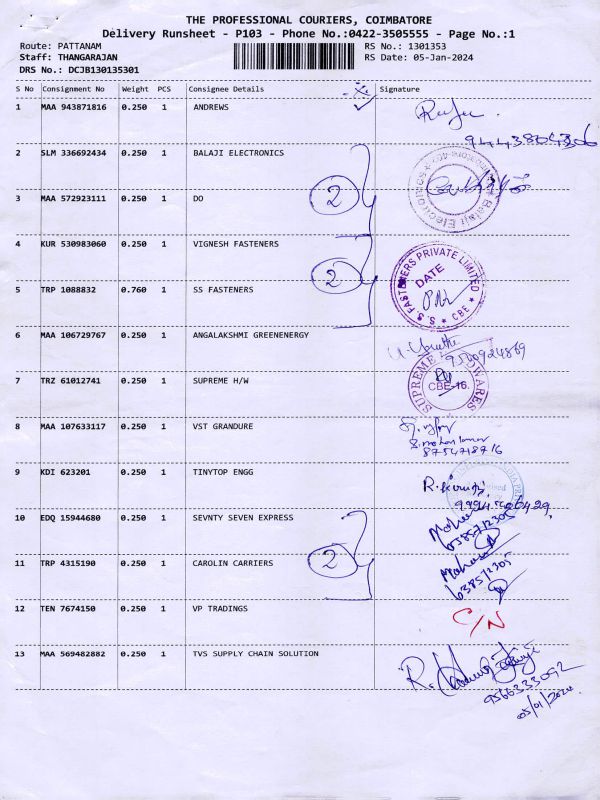 THE PROFESSIONAL COURIERS, COIMBATORE
Delivery Runsheet - P103 - Phone No.:0422-3505555 - Page No.:1
Route: PATTANAM RS No.: 1301353
Staff: THANGARAJAN RS Date: 05-Jan-2024
DRS No.: DCJB130135301
S No Consignment No Weight PCS Consignee Details Signature
1 MAA 943871816 0.250 1 ANDREWS
2 SLM 336692434 0.250 1 BALAJI ELECTRONICS
2
3 MAA 572923111 0.250 1 DO
4 KUR 530983060 0.250 1 VIGNESH FASTENERS
2
S. S. FASTENERS PRIVATE LIMITED
DATE
CBE
5 TRP 1088832 0.760 1 SS FASTENERS
6 MAA 106729767 0.250 1 ANGALAKSHMI GREENENERGY
7 TRZ 61012741 0.250 1 SUPREME H/W
SUPREME
CBE-16.
8 MAA 107633117 0.250 1 VST GRANDURE
8754718716
9 KDI 623201 0.250 1 TINYTOP ENGG
10 EDQ 15944680 0.250 1 SEVNTY SEVEN EXPRESS
2
11 TRP 4315190 0.250 1 CAROLIN CARRIERS
12 TEN 7674150 0.250 1 VP TRADINGS
C/N
13 MAA 569482882 0.250 1 TVS SUPPLY CHAIN SOLUTION
9566333092
05/01/2024